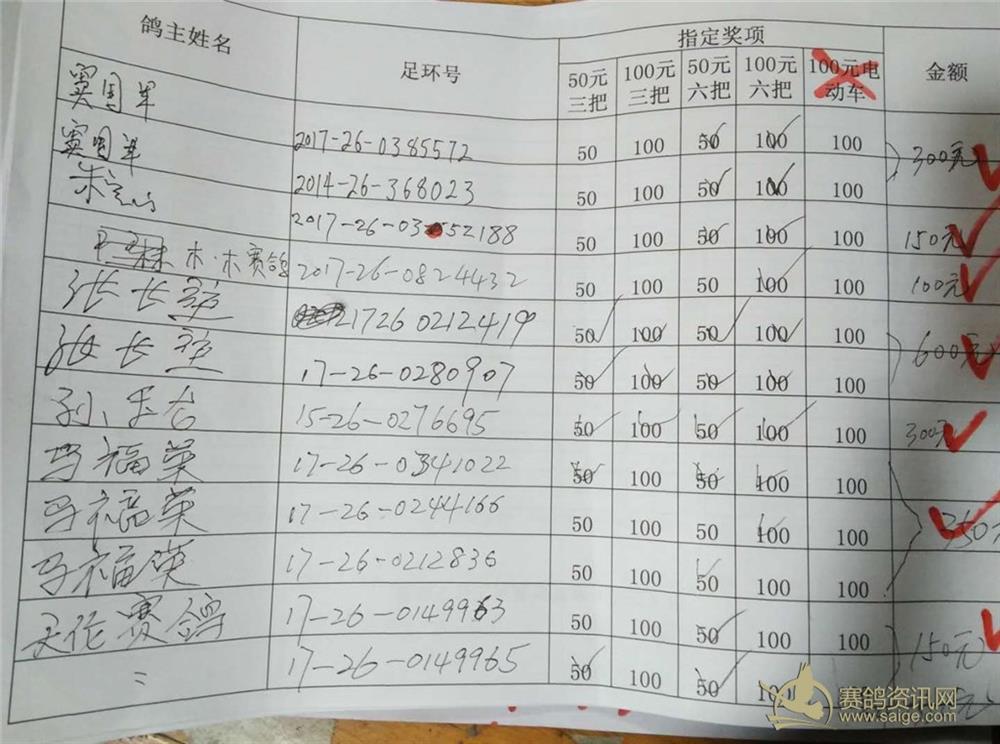 鸽主姓名 足环号 指定奖项 金额
50元三把 100元三把 50元六把 100元六把 100元电动车
窦国军 2017-26-0385572 50 100 50 100 100 300元
窦国军 2014-26-368023 50 100 50 100 100
朱 2017-26-03 52188 50 100 50 100 100 150元
林 木·木赛鸽 2017-26-0824432 50 100 50 100 100 100元
张长 21726 0212419 50 100 50 100 100 600元
张长 17-26-0280907 50 100 50 100 100
孙玉台 15-26-0276695 50 100 50 100 100 300元
马福英 17-26-0341022 50 100 50 100 100
马福英 17-26-0244166 50 100 50 100 100 350元
马福英 17-26-0212836 50 100 50 100 100
天伦赛鸽 17-26-0149963 50 100 50 100 100 150元
17-26-0149965 50 100 50 100 100
赛鸽资讯网
www.saige.com